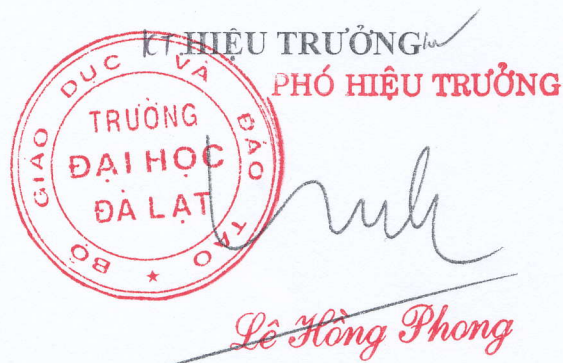 KT HIỆU TRƯỞNG
PHÓ HIỆU TRƯỞNG
BỘ GIÁO DỤC VÀ ĐÀO TẠO
TRƯỜNG
ĐẠI HỌC
ĐÀ LẠT
Lê Hồng Phong